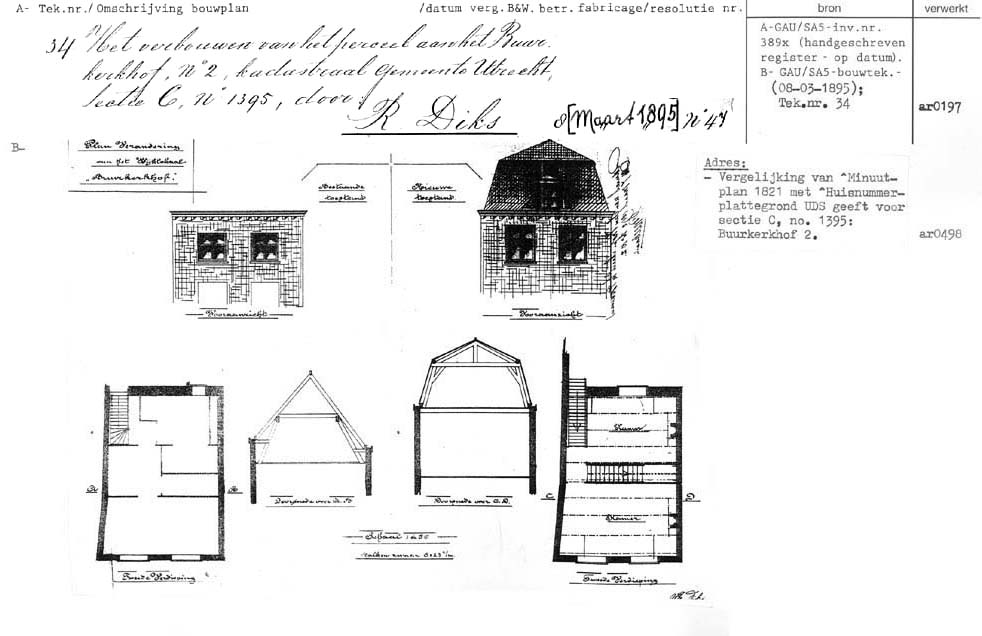 A- Tek.nr./Omschrijving bouwplan /datum verg.B&W. betr. fabricage/resolutie nr. bron verwerkt
34 Het verbouwen van het perceel aan het Buur-
kerkhof, No 2, kadastraal Gemeente Utrecht,
Sectie C, No 1395, door:
R Diks 8 [Maart 1895] No 47
A-GAU/SA5-inv.nr.
389x (handgeschreven
register - op datum).
B- GAU/SA5-bouwtek.-
(08-03-1895);
Tek.nr. 34 ar0197
B-
Plan Verandering
van het
"Buurkerkhof".
Bestaande
toestand
Nieuwe
toestand
Adres:
- Vergelijking van ^Minuut-
plan 1821 met ^Huisnummer-
plattegrond UDS geeft voor
sectie C, no. 1395:
Buurkerkhof 2. ar0498
Vooraanzicht
Vooraanzicht
Kamer
Kamer
A B C D
Doorsnede over A.B
Doorsnede over C.D.
Schaal 1 à 50
Tweede Verdieping
Tweede Verdieping